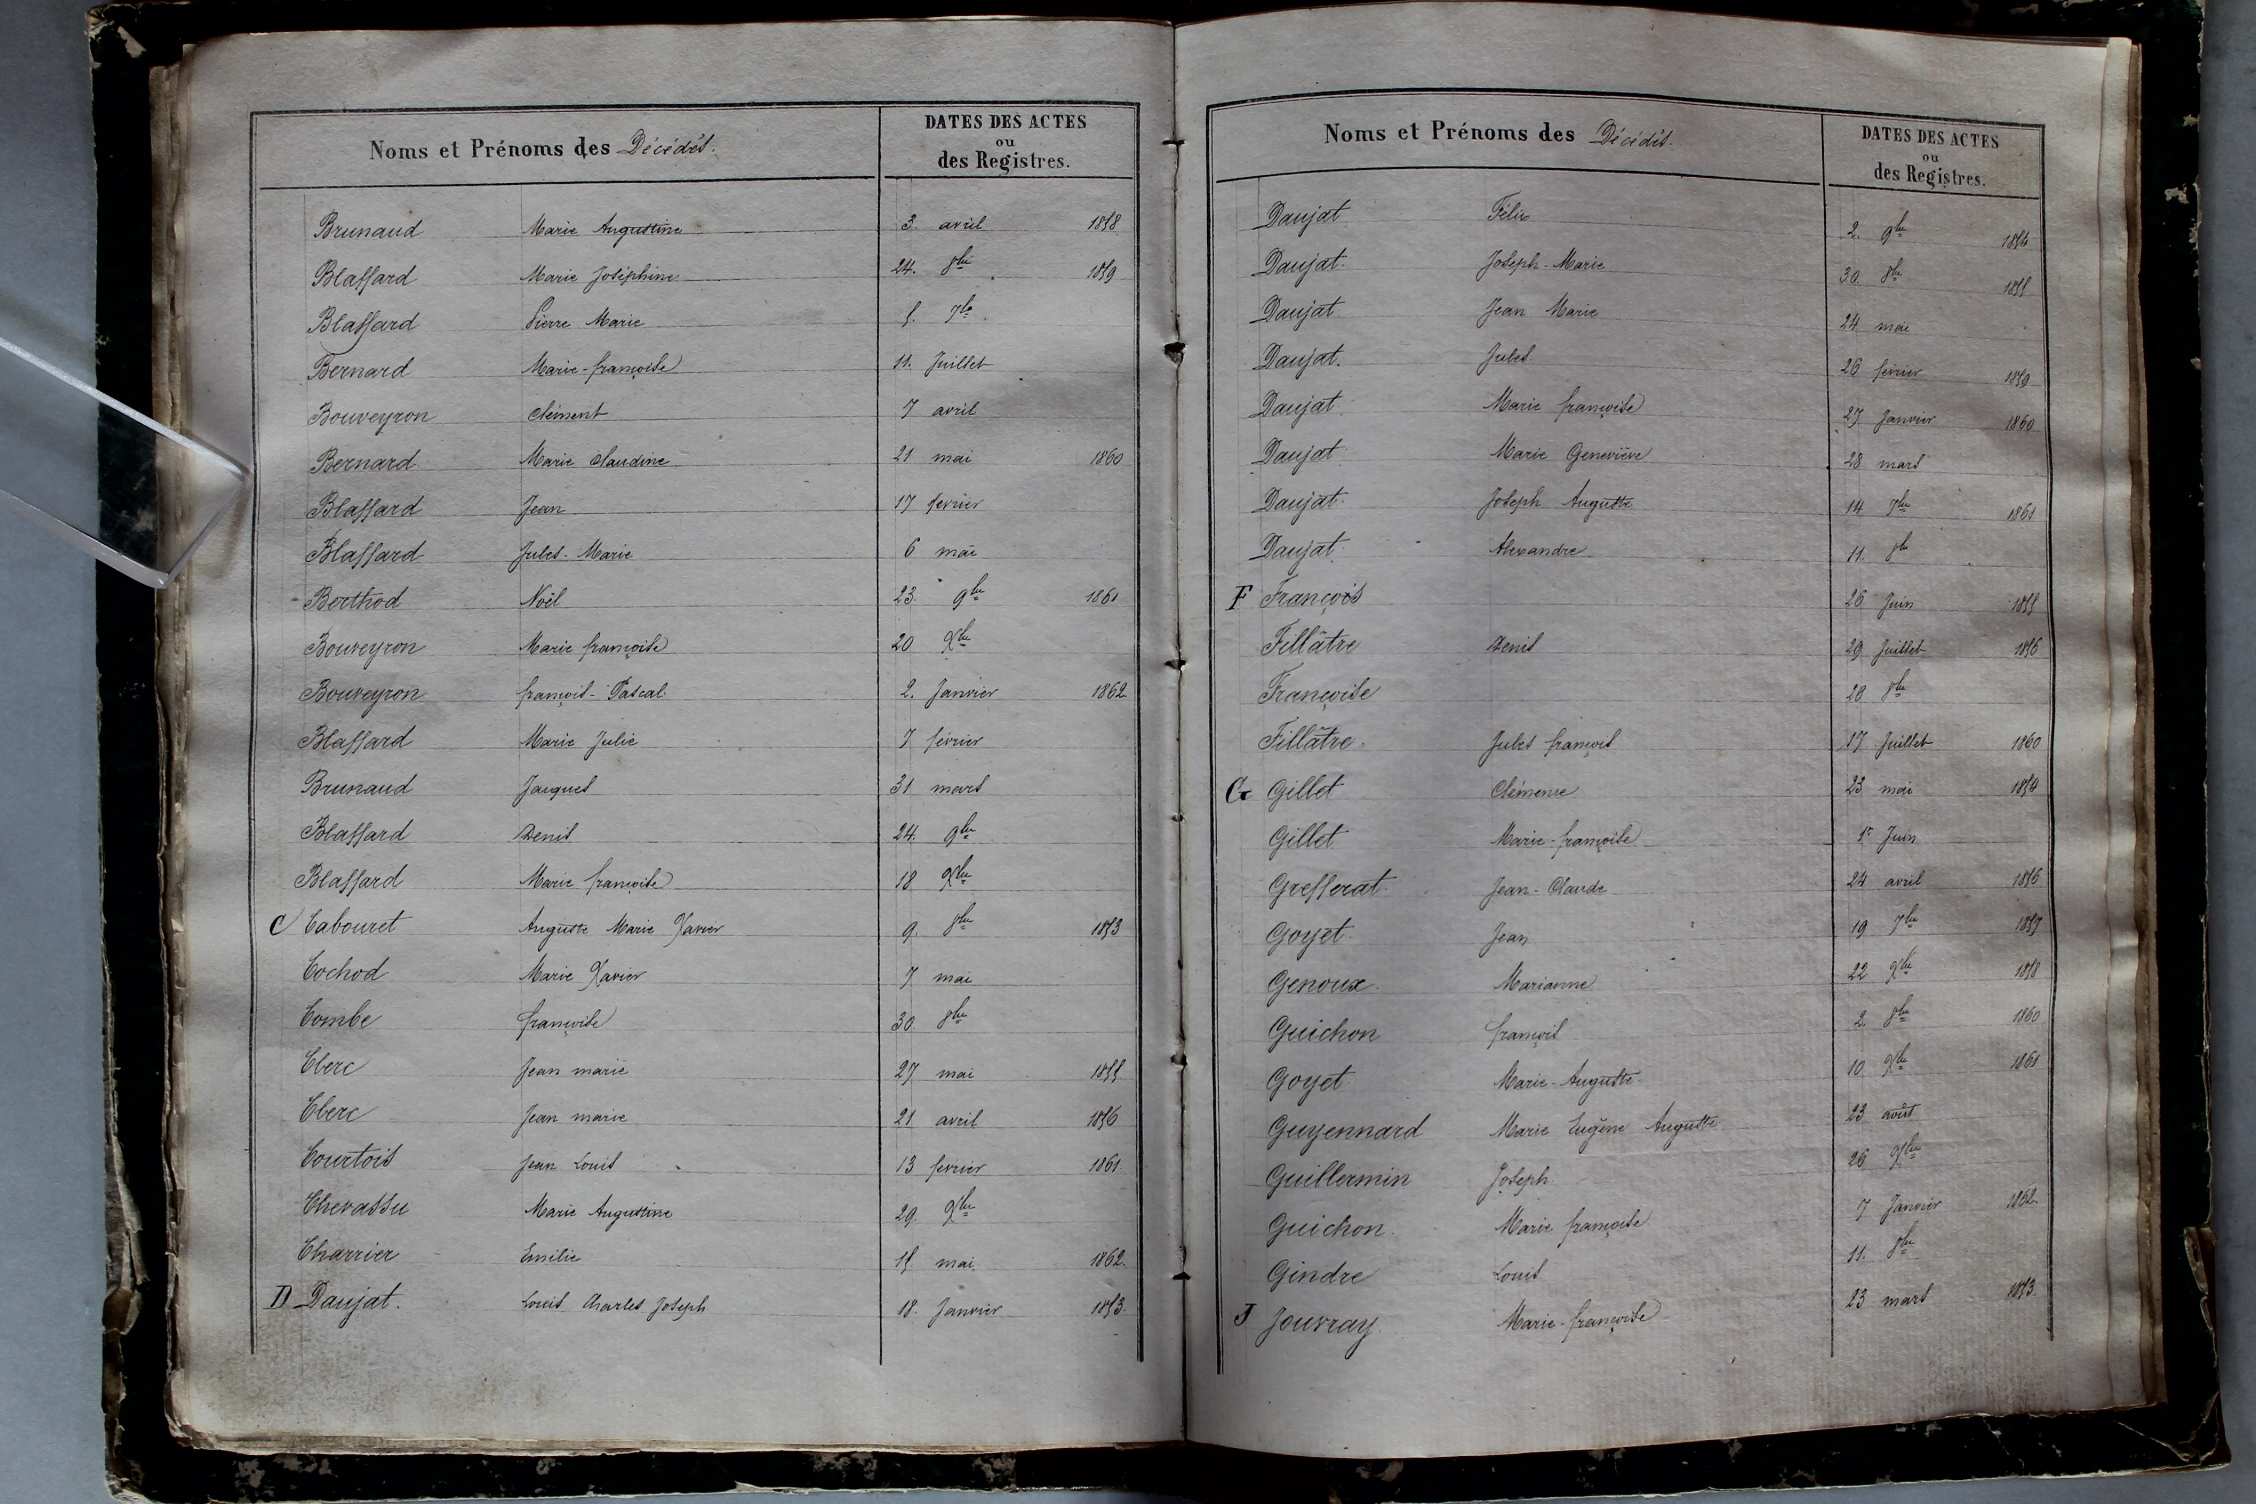 Noms et Prénoms des Décédés. DATES DES ACTES
ou
des Registres.
Brunaud Marie Augustine 3. avril 1858
Blaffard Marie Joséphine 24. 8bre 1859
Blaffard Pierre Marie 5. 7bre
Bernard Marie-françoise 11. Juillet
Bouveyron Clément 7 avril
Bernard Marie Claudine 21 mai 1860
Blaffard Jean 17 fevrier
Blaffard Jules-Marie 6 mai
Berthod Noël 23. 9bre 1861
Bouveyron Marie françoise 20 Xbre
Bouveyron françois-Pascal 2. Janvier 1862
Blaffard Marie Julie 7 fevrier
Brunaud Jacques 31 mars
Blaffard Denis 24. 9bre
Blaffard Marie françoise 18 Xbre
C Cabouret Auguste Marie Xavier 9. 8bre 1853
Cochod Marie Xavier 7 mai
Combe françoise 30 8bre
Clerc Jean marie 27 mai 1855
Clerc Jean marie 21 avril 1856
Courtois Jean Louis 13 fevrier 1861
Chevassu Marie Augustine 29. Xbre
Charrier Emilie 15 mai 1862.
D Daujat. Louis Charles Joseph 18. Janvier 1853
Noms et Prénoms des Décédés. DATES DES ACTES
ou
des Registres.
Daujat Félix 2. 9bre 1854
Daujat Joseph-Marie 30 8bre 1855
Daujat Jean Marie 24 mai
Daujat. Jules 26 fevrier 1859
Daujat Marie françoise 27 Janvier 1860
Daujat Marie Geneviève 28 mars
Daujat Joseph Auguste 14 7bre 1861
Daujat Alexandre 11. 8bre
F François 26 Juin 1855
Fillâtre Denis 29 Juillet 1856
Françoise 28 8bre
Fillâtre. Jules françois 17 Juillet 1860
G Gillet Clémence 23 mai 1854
Gillet Marie-françoise 1er Juin
Grefferat Jean-Claude 24 avril 1856
Goyet Jean 19 7bre 1857
Genoux Marianne 22 Xbre 1858
Guichon françois 2 8bre 1860
Goyet Marie-Auguste 10 Xbre 1861
Guyennard Marie Eugène Auguste 23 août
Guillermin Joseph 26 Xbre
Guichon Marie françoise 7 Janvier 1862
Gindre Louis 11. 8bre
J Jouvray Marie-françoise 23 mars 1853.